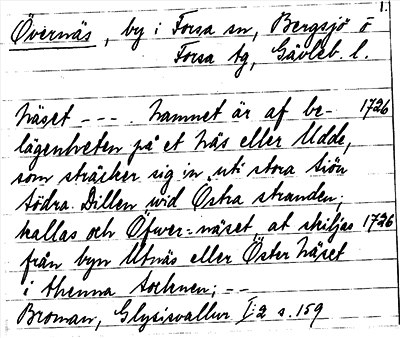 1.
Övernäs, by i Forsa sn, Bergsjö o
Forsa tg, Gävleb. l.
Näset - - - . Namnet är af be- 1726
lägenheten på et Näs eller Udde,
som sträcker sig in uti stora siön
södra Dillen wid Östra stranden;
kallas och Öfwer=näset, at skiljas 1726
från byn Utnäs eller Öster Näset
i thenna Socknen; - -
Broman, Glysisvallur I:2 s. 159